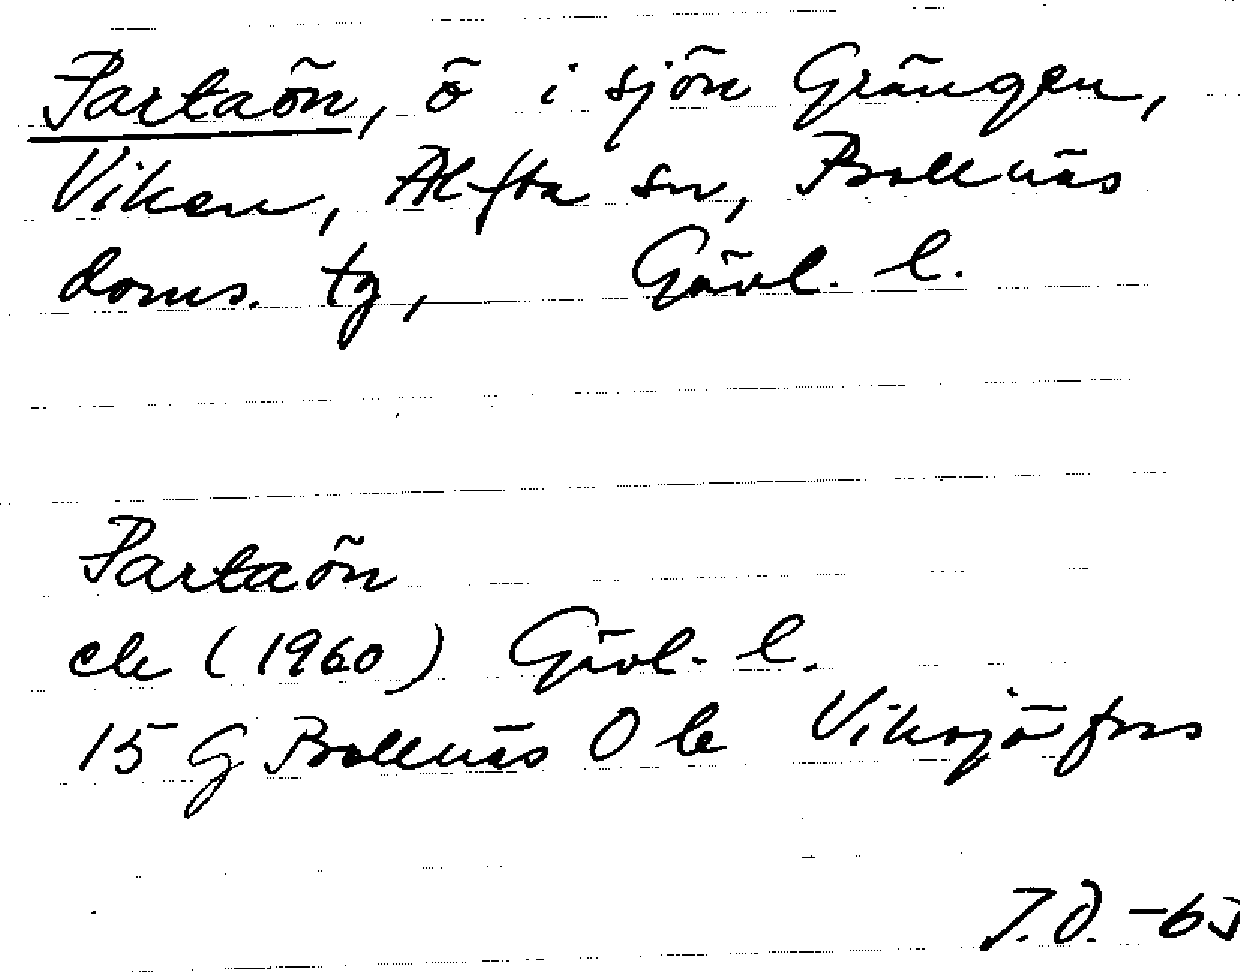 Partaön, ö i sjön Grängen,
Viken, Alfta sn, Bollnäs
doms. tg, Gävl. l.
Partaön
ek (1960) Gävl. l.
15 G Bollnäs O b Viksjöfors
J.Ö. -63